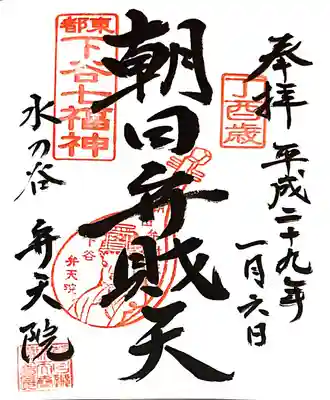 奉拝 平成二十九年
一月六日
丁酉歳
朝日弁財天
東都
下谷七福神
下谷
弁天院
水の谷 弁天院